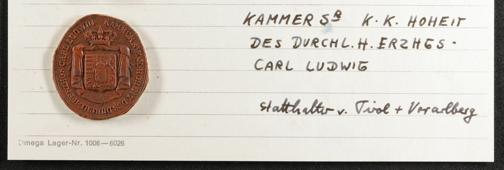 KAMMER SR K.K. HOHEIT
DES DURCHL. H. ERZHES.
CARL LUDWIG
Statthalter v. Tirol + Vorarlberg
Omega Lager-Nr. 1006—6026